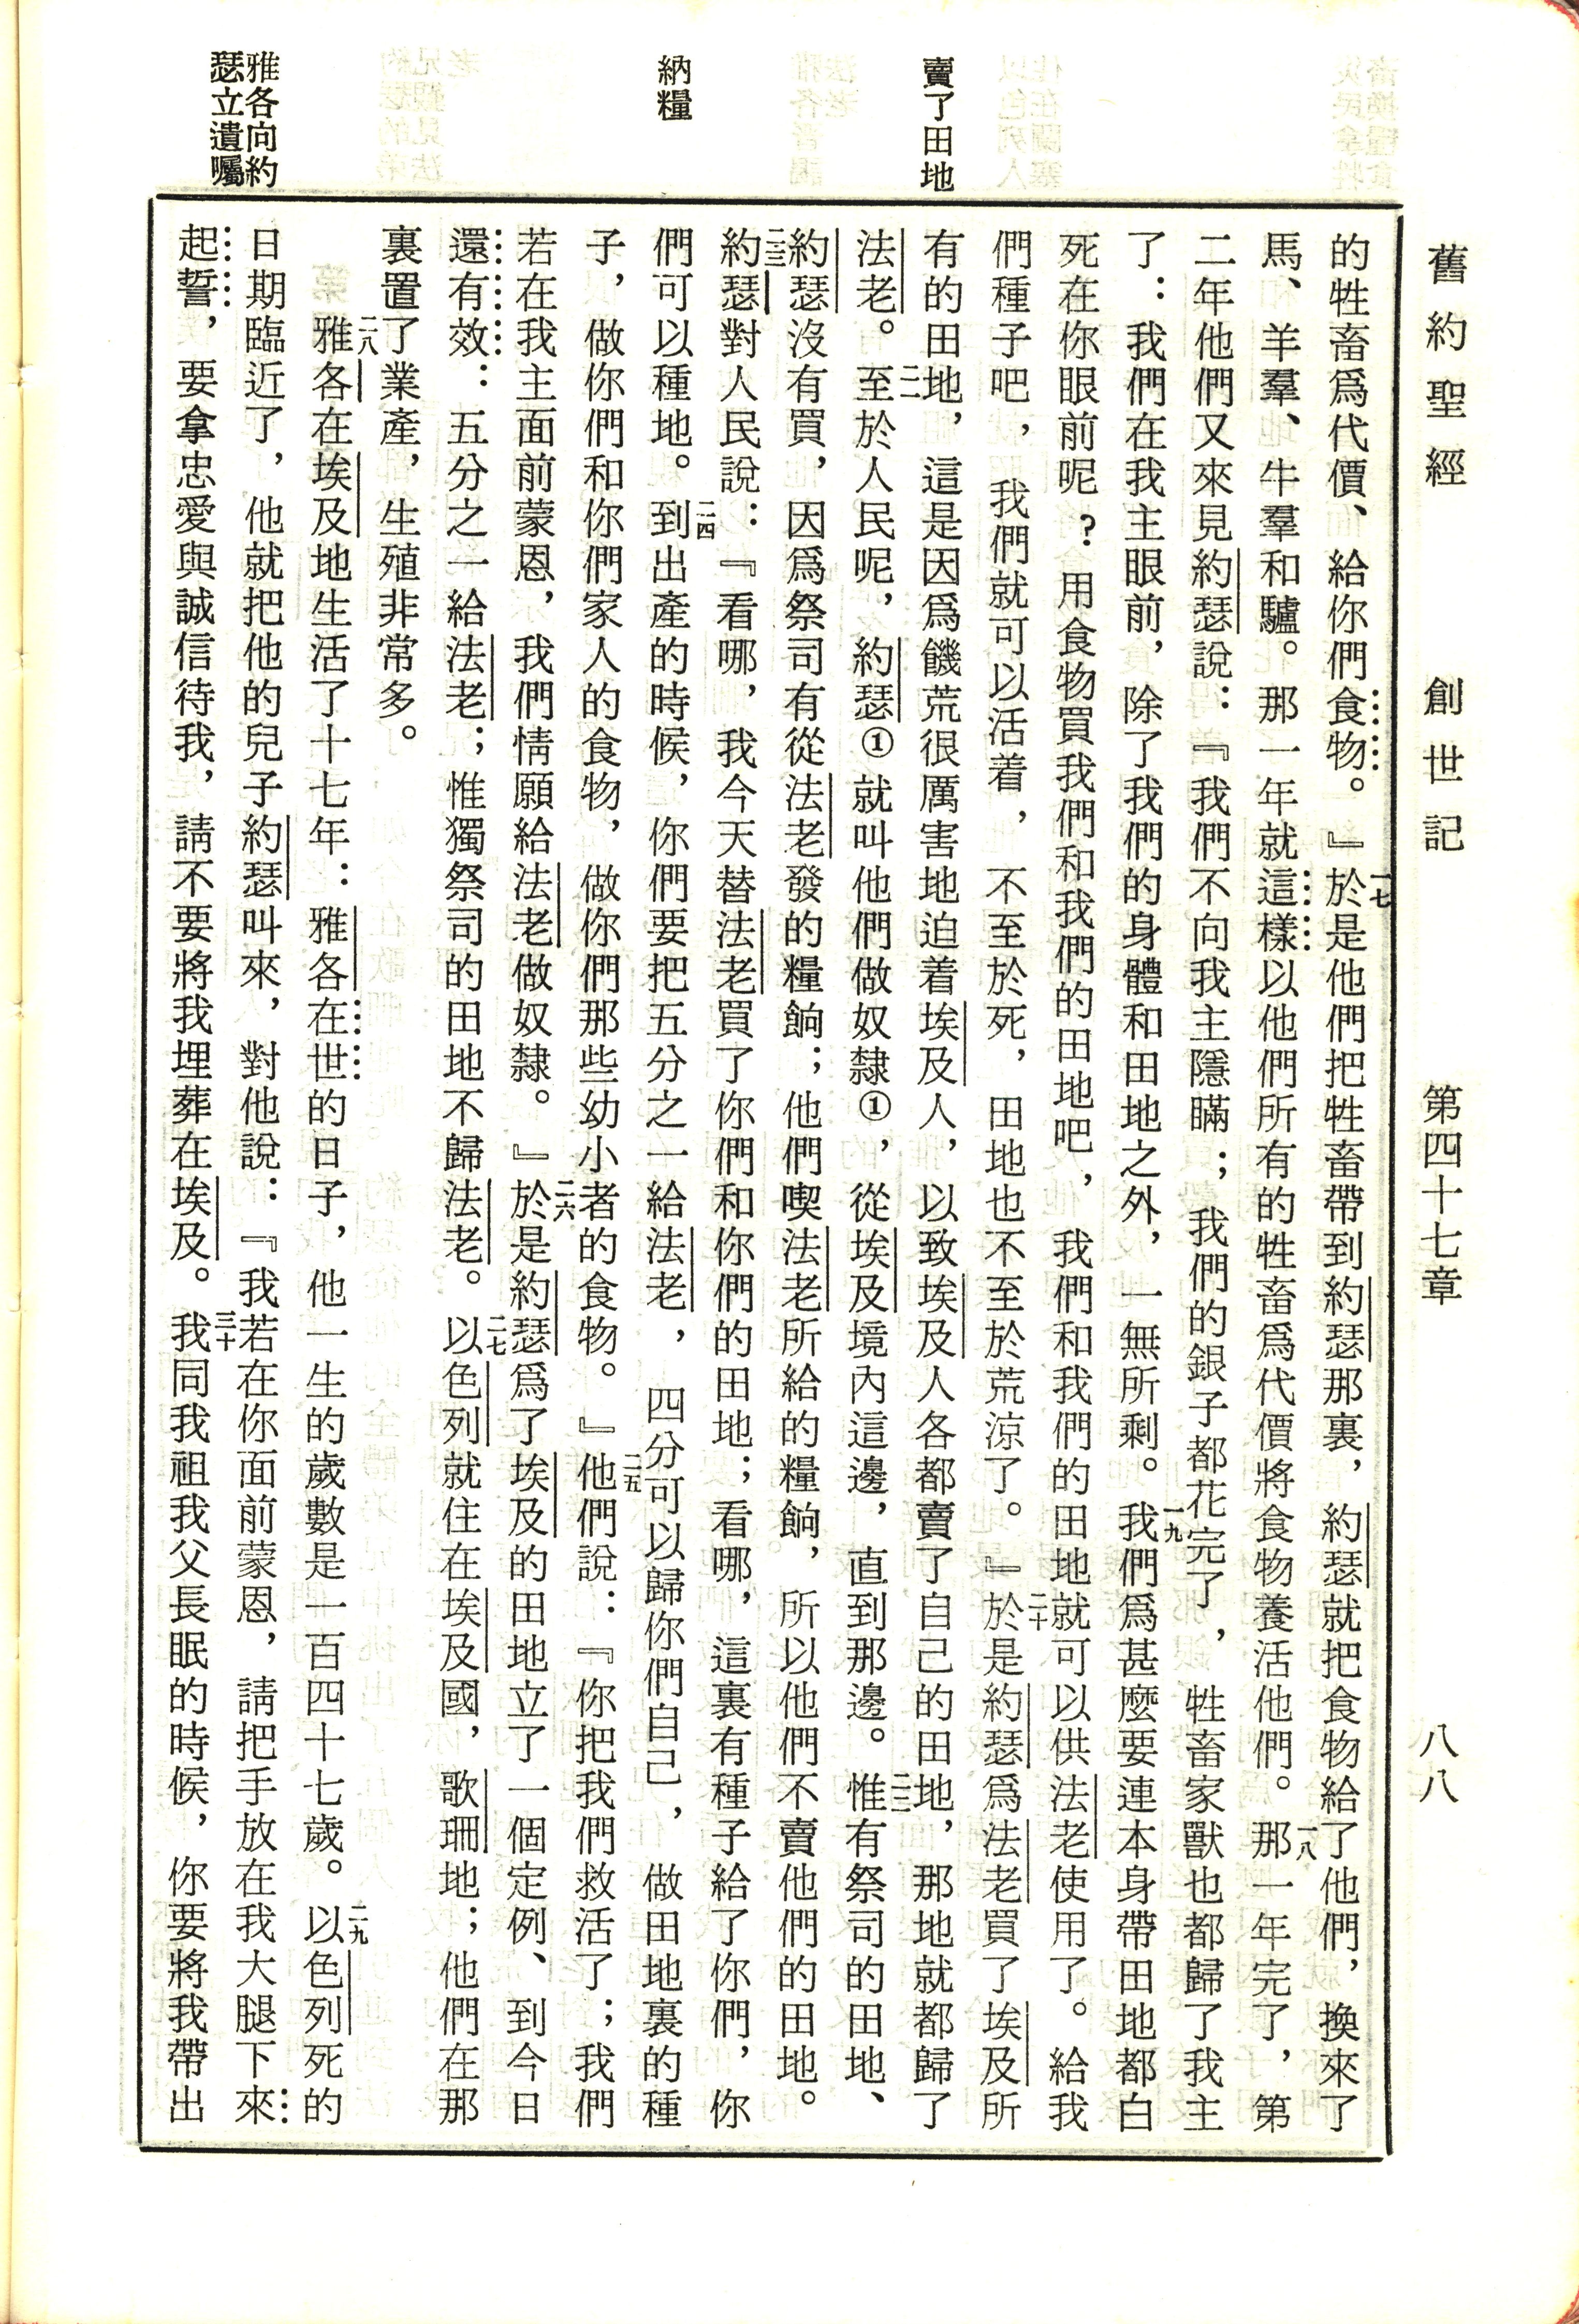 舊約聖經　創世記　第四十七章　八八
賣了田地
納糧
雅各向約
瑟立遺囑
的牲畜爲代價、給你們食物。』一七於是他們把牲畜帶到約瑟那裏，約瑟就把食物給了他們，換來了
馬、羊羣、牛羣和驢。那一年就這樣以他們所有的牲畜爲代價將食物養活他們。一八那一年完了，第
二年他們又來見約瑟說：『我們不向我主隱瞞；我們的銀子都花完了，牲畜家獸也都歸了我主
了：我們在我主眼前，除了我們的身體和田地之外，一無所剩。一九我們爲甚麼要連本身帶田地都白
死在你眼前呢？用食物買我們和我們的田地吧，我們和我們的田地就可以供法老使用了。給我
們種子吧，我們就可以活着，不至於死，田地也不至於荒涼了。』二十於是約瑟爲法老買了埃及所
有的田地，這是因爲饑荒很厲害地迫着埃及人，以致埃及人各都賣了自己的田地，那地就都歸了
法老。二一至於人民呢，約瑟①就叫他們做奴隸①，從埃及境內這邊，直到那邊。二二惟有祭司的田地、
約瑟沒有買，因爲祭司有從法老發的糧餉；他們喫法老所給的糧餉，所以他們不賣他們的田地。
二三約瑟對人民說：『看哪，我今天替法老買了你們和你們的田地；看哪，這裏有種子給了你們，你
們可以種地。二四到出產的時候，你們要把五分之一給法老，四分可以歸你們自己，做田地裏的種
子，做你們和你們家人的食物，做你們那些幼小者的食物。』二五他們說：『你把我們救活了；我們
若在我主面前蒙恩，我們情願給法老做奴隸。』二六於是約瑟爲了埃及的田地立了一個定例、到今日
還有效：五分之一給法老；惟獨祭司的田地不歸法老。二七以色列就住在埃及國，歌珊地；他們在那
裏置了業產，生殖非常多。
二八雅各在埃及地生活了十七年：雅各在世的日子，他一生的歲數是一百四十七歲。二九以色列死的
日期臨近了，他就把他的兒子約瑟叫來，對他說：『我若在你面前蒙恩，請把手放在我大腿下來
起誓，要拿忠愛與誠信待我，請不要將我埋葬在埃及。三十我同我祖我父長眠的時候，你要將我帶出